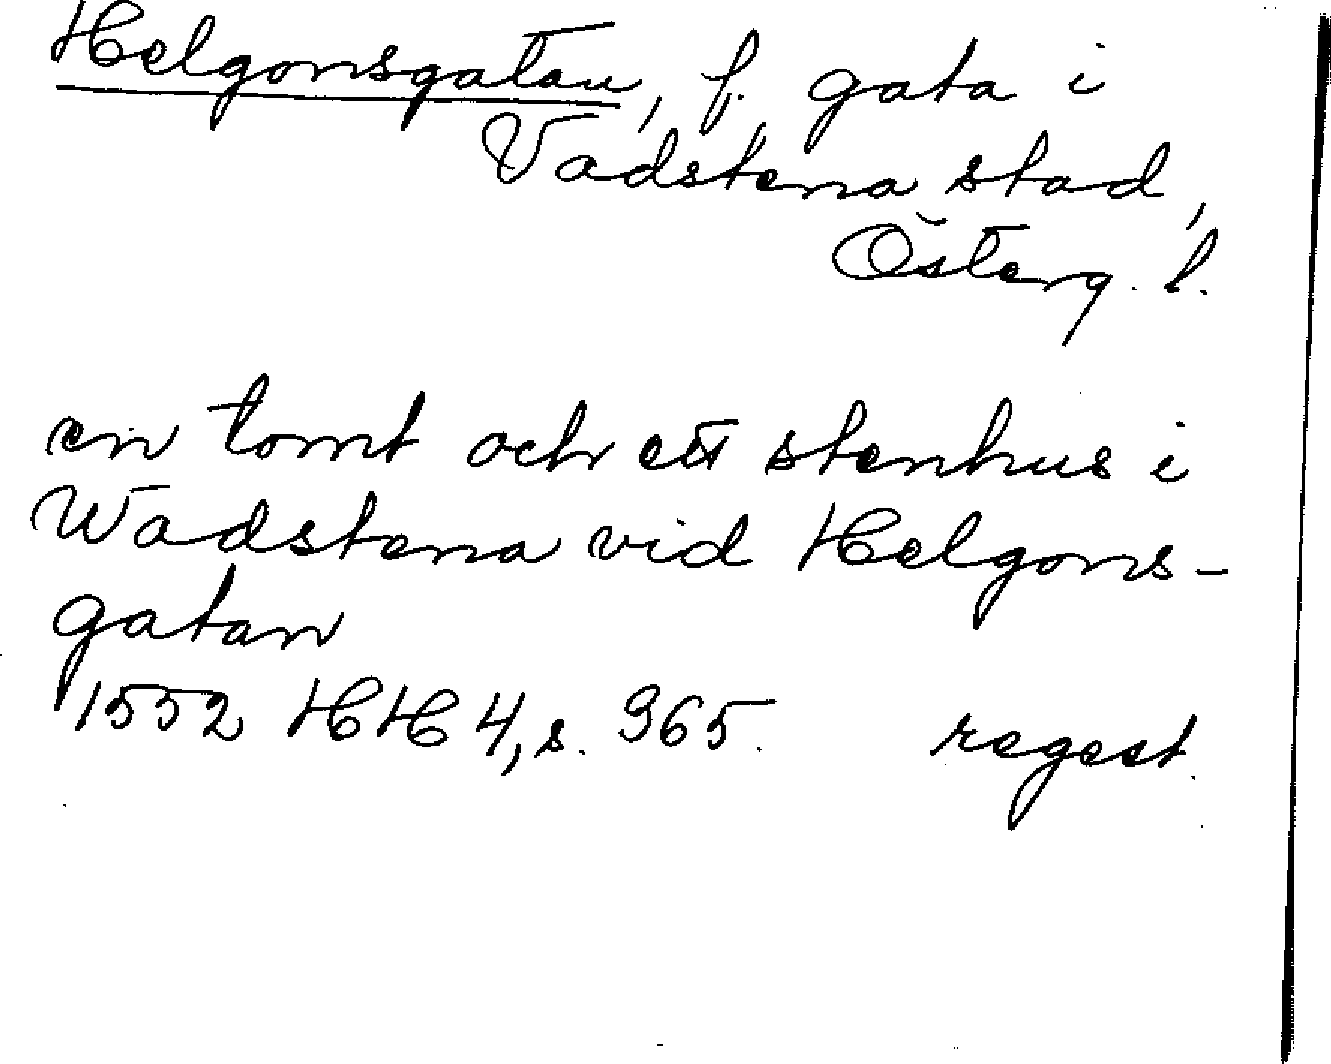 Helgonsgatan, f. gata i
Vadstena stad,
Österg. l.
en tomt och ett stenhus i
Wadstena vid Helgons-
gatan
1552 HH 4, s. 365. regest.